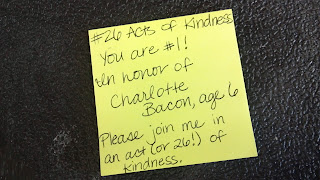 #26 Acts of Kindness
You are #1!
In honor of
Charlotte
Bacon, age 6
Please join me in
an act (or 26!) of
kindness.